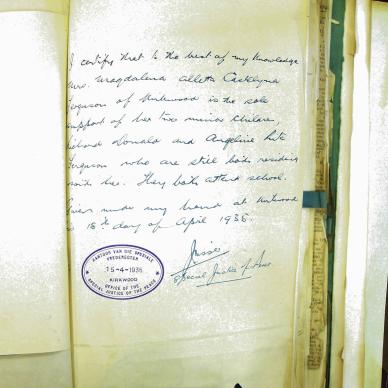 I certify that to the best of my knowledge
Mrs. Magdalena Aletta Catelyna
Ferguson of Kirkwood is the sole
support of her two minor children,
Richard Donald and Angeline Rita
Ferguson who are still both residing
with her. They both attend school.
Given under my hand at Kirkwood
this 15th day of April 1935.
Special Justice of Peace
KANTOOR VAN DIE SPESIALE VREDEREGTER
15-4-1935
KIRKWOOD
OFFICE OF THE SPECIAL JUSTICE OF THE PEACE